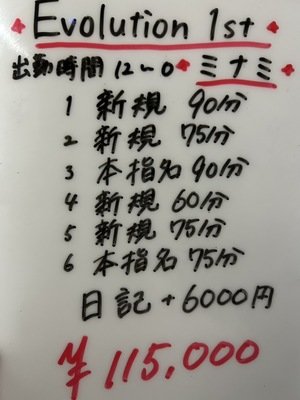 Evolution 1st
出勤時間 12〜0 ミナミ
1 新規 90分
2 新規 75分
3 本指名 90分
4 新規 60分
5 新規 75分
6 本指名 75分
日記 + 6000円
¥115,000